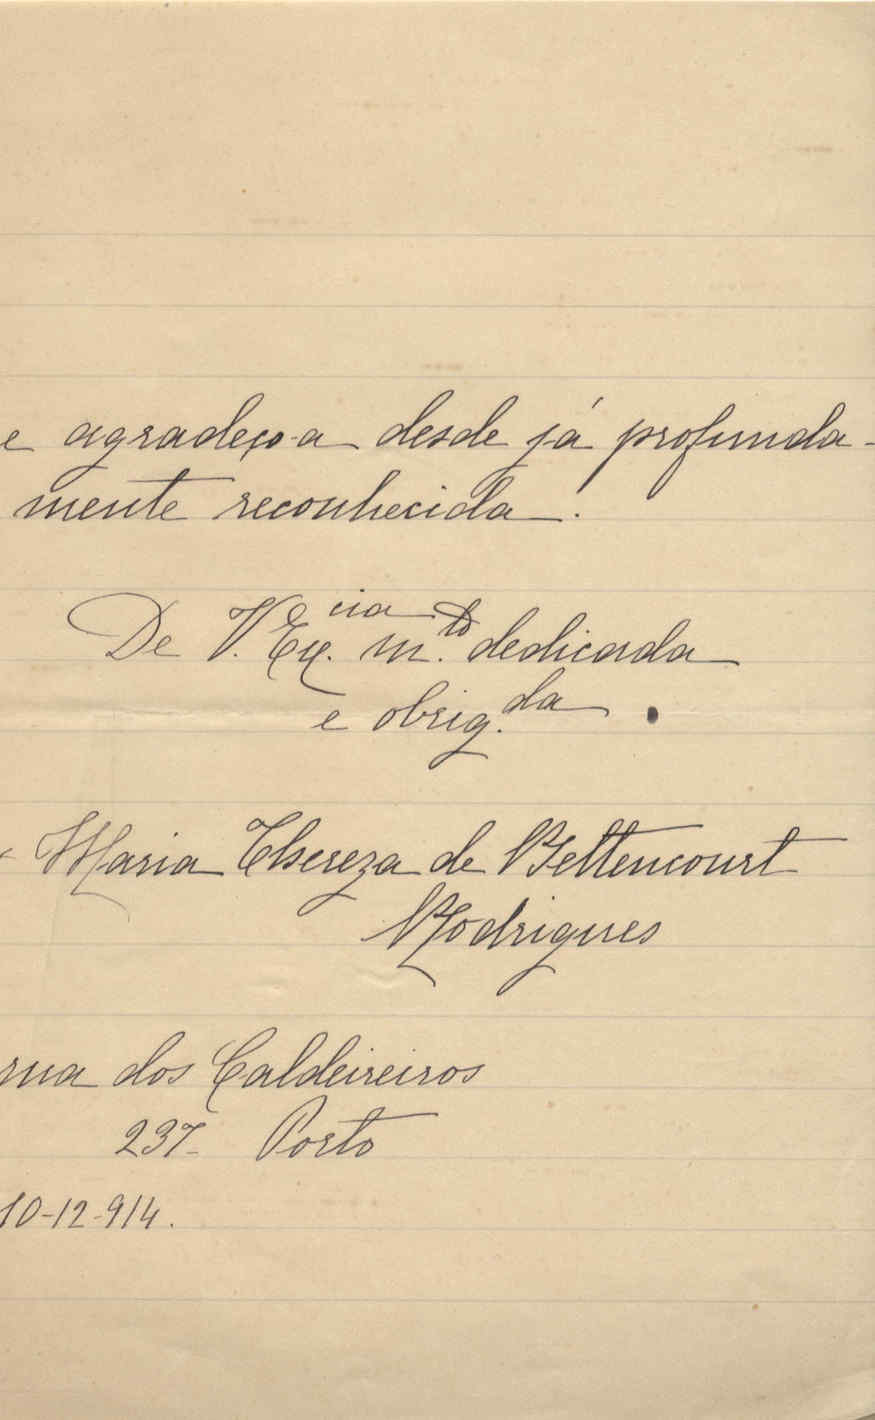 e agradeço-a desde já profunda-
mente reconhecida.
De V. Ex.cia m.to dedicada
e obrig.da
Maria Thereza de Bettencourt
Rodrigues
rua dos Caldeireiros
237- Porto
10-12-914.